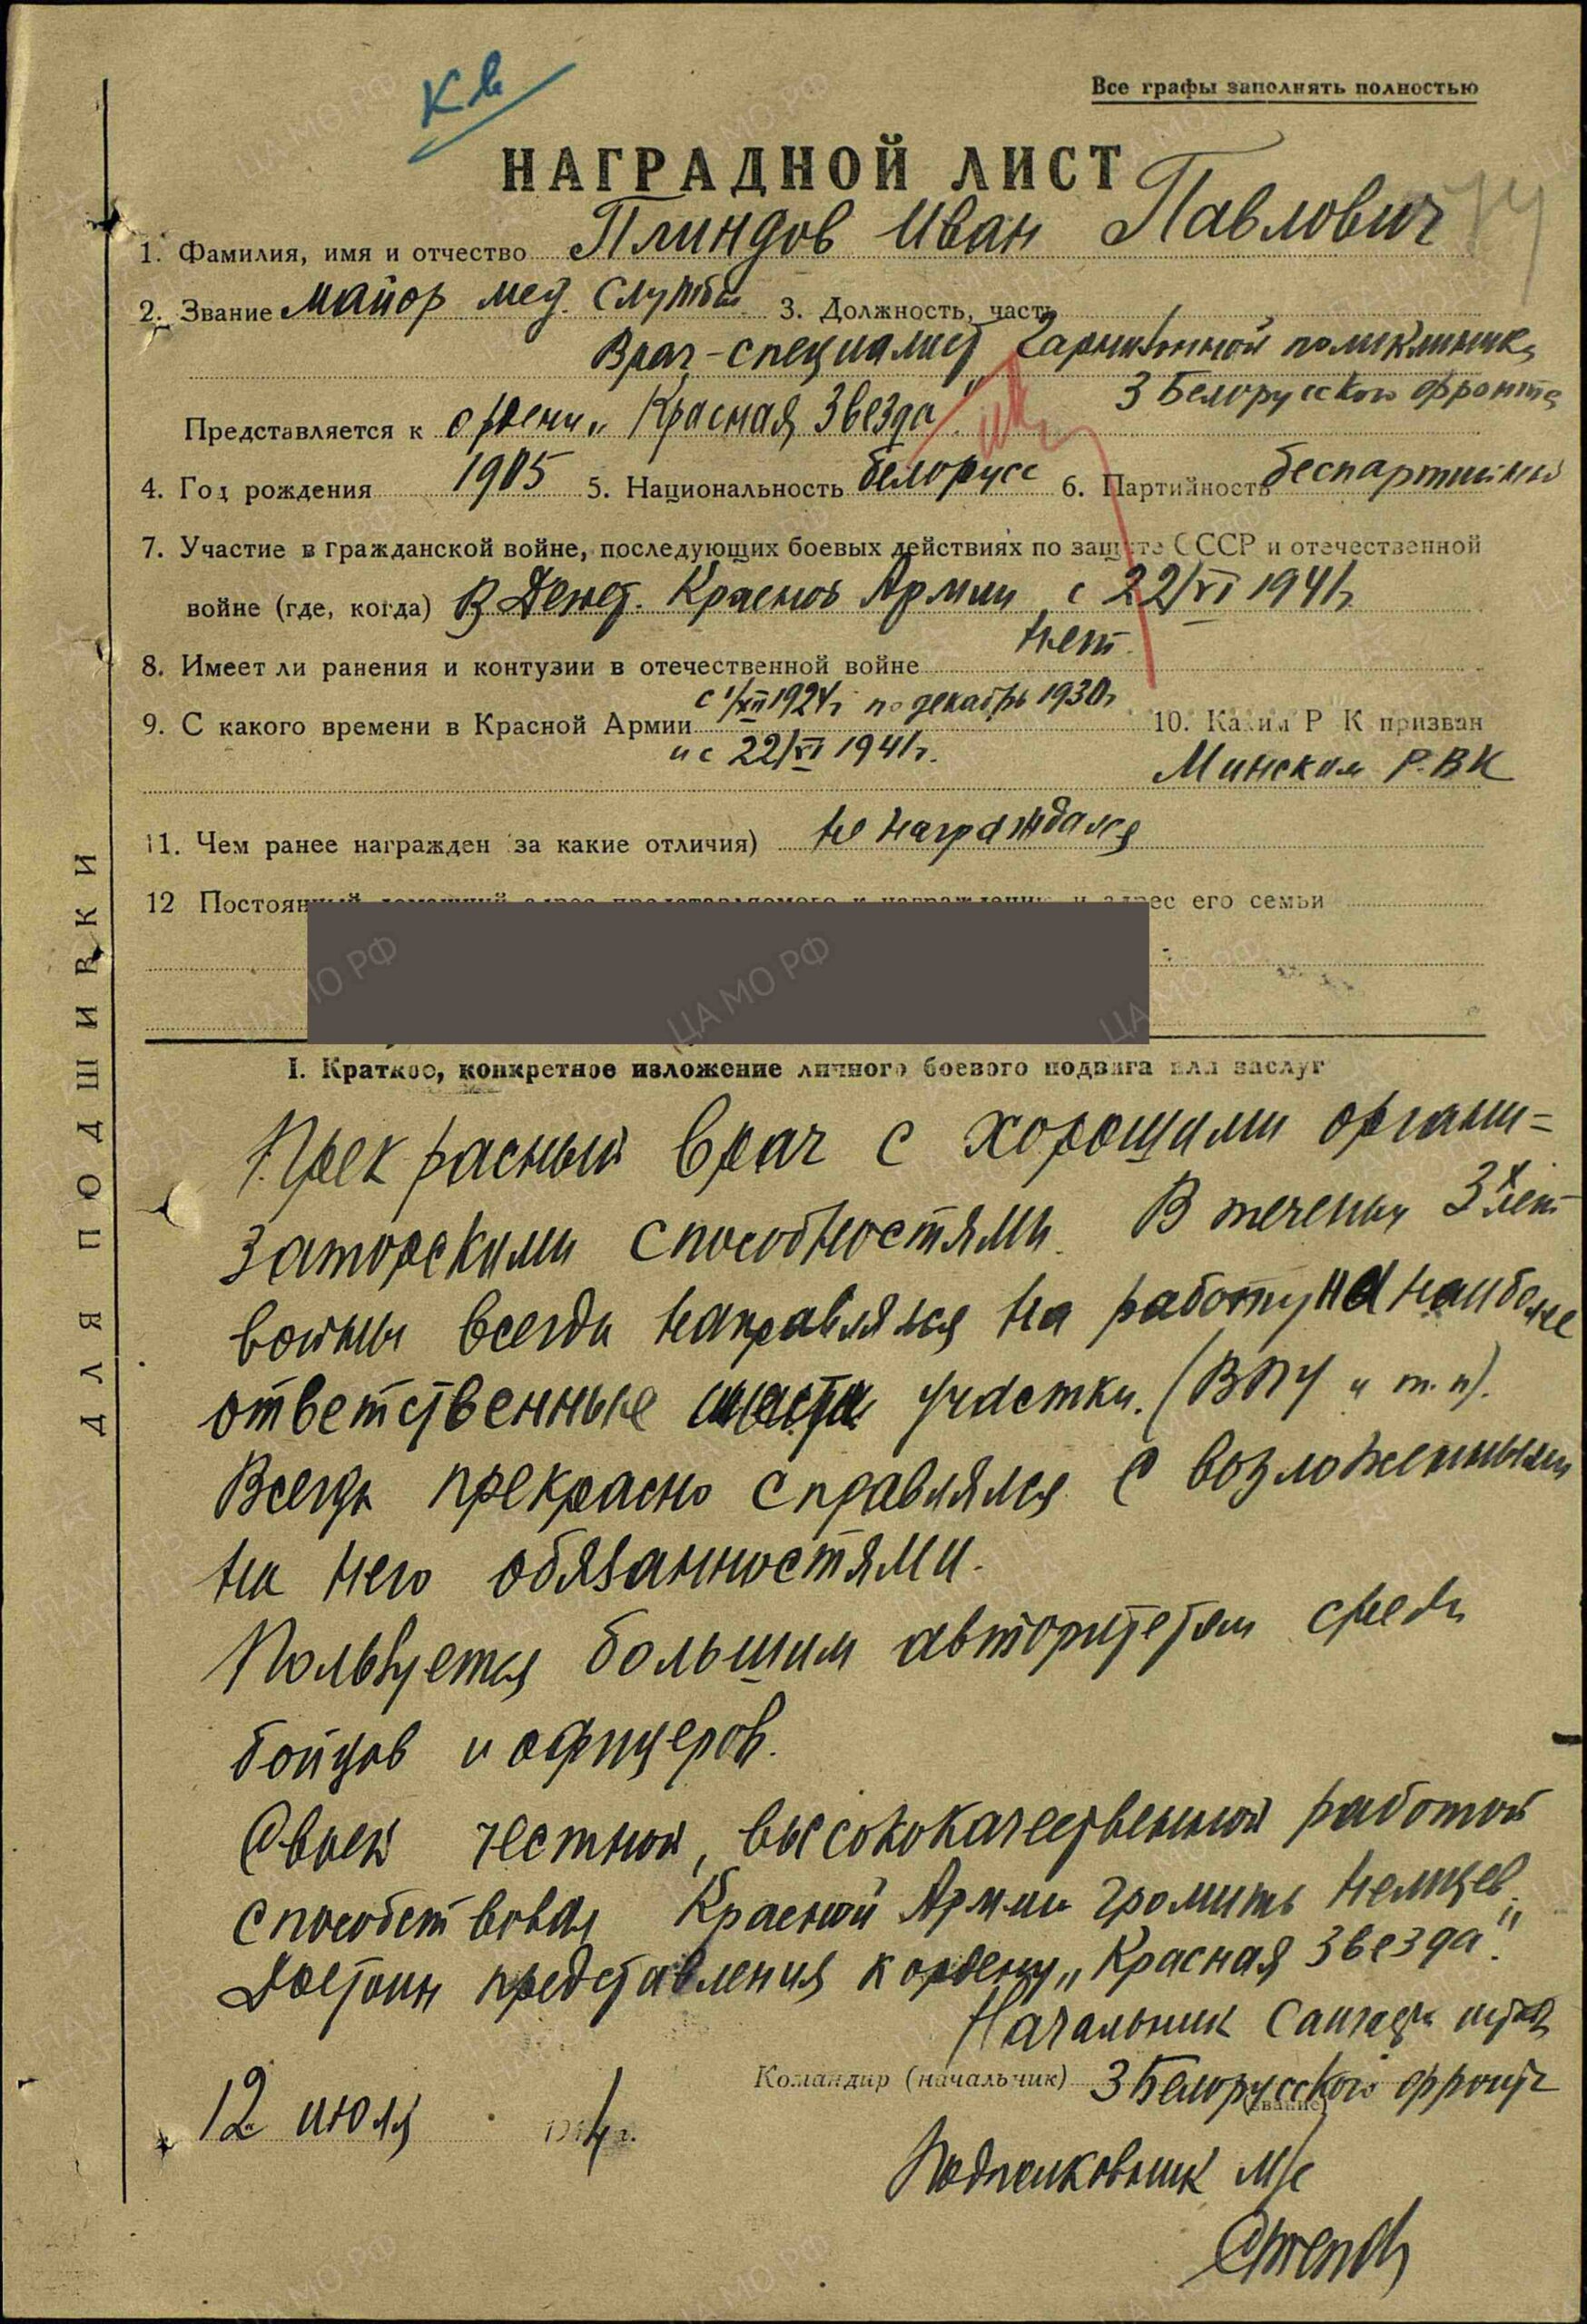 Кв
Все графы заполнять полностью
НАГРАДНОЙ ЛИСТ
1. Фамилия, имя и отчество Плиндов Иван Павлович
2. Звание майор мед. службы 3. Должность, часть
Врач-специалист Гарнизонной поликлиники
3 Белорусского фронта
Представляется к ордену „Красная Звезда"
4. Год рождения 1905 5. Национальность белорусс 6. Партийность беспартийный
7. Участие в гражданской войне, последующих боевых действиях по защите СССР и отечественной
войне (где, когда) В Дейст. Красной Армии с 22/VI 1941г.
8. Имеет ли ранения и контузии в отечественной войне нет.
9. С какого времени в Красной Армии с 1/XII 1927г. по декабрь 1930г
и с 22/VI 1941г. 10. Каким Р К призван
Минским Р.ВК
11. Чем ранее награжден за какие отличия) не награждался
12 Постоянный домашний адрес представляемого к награждению и адрес его семьи
ДЛЯ ПОДШИВКИ
I. Краткое, конкретное изложение личного боевого подвига или заслуг
Прекрасный врач с хорошими органи=
заторскими способностями. В течении 3х лет
войны всегда направлялся на работу на наиболее
ответственные участки. (ВПУ и т.п).
Всегда прекрасно справлялся с возложенными
на него обязанностями.
Пользуется большим авторитетом среди
бойцов и офицеров.
Своей честной, высококачественной работой
способствовал Красной Армии громить немцев.
Достоин представления к ордену „Красная Звезда".
Начальник Санчасти штаба
Командир (начальник) 3 Белорусского фронта
(звание)
12 июля 1944 г.
Подполковник м/с
ЦА МО РФ